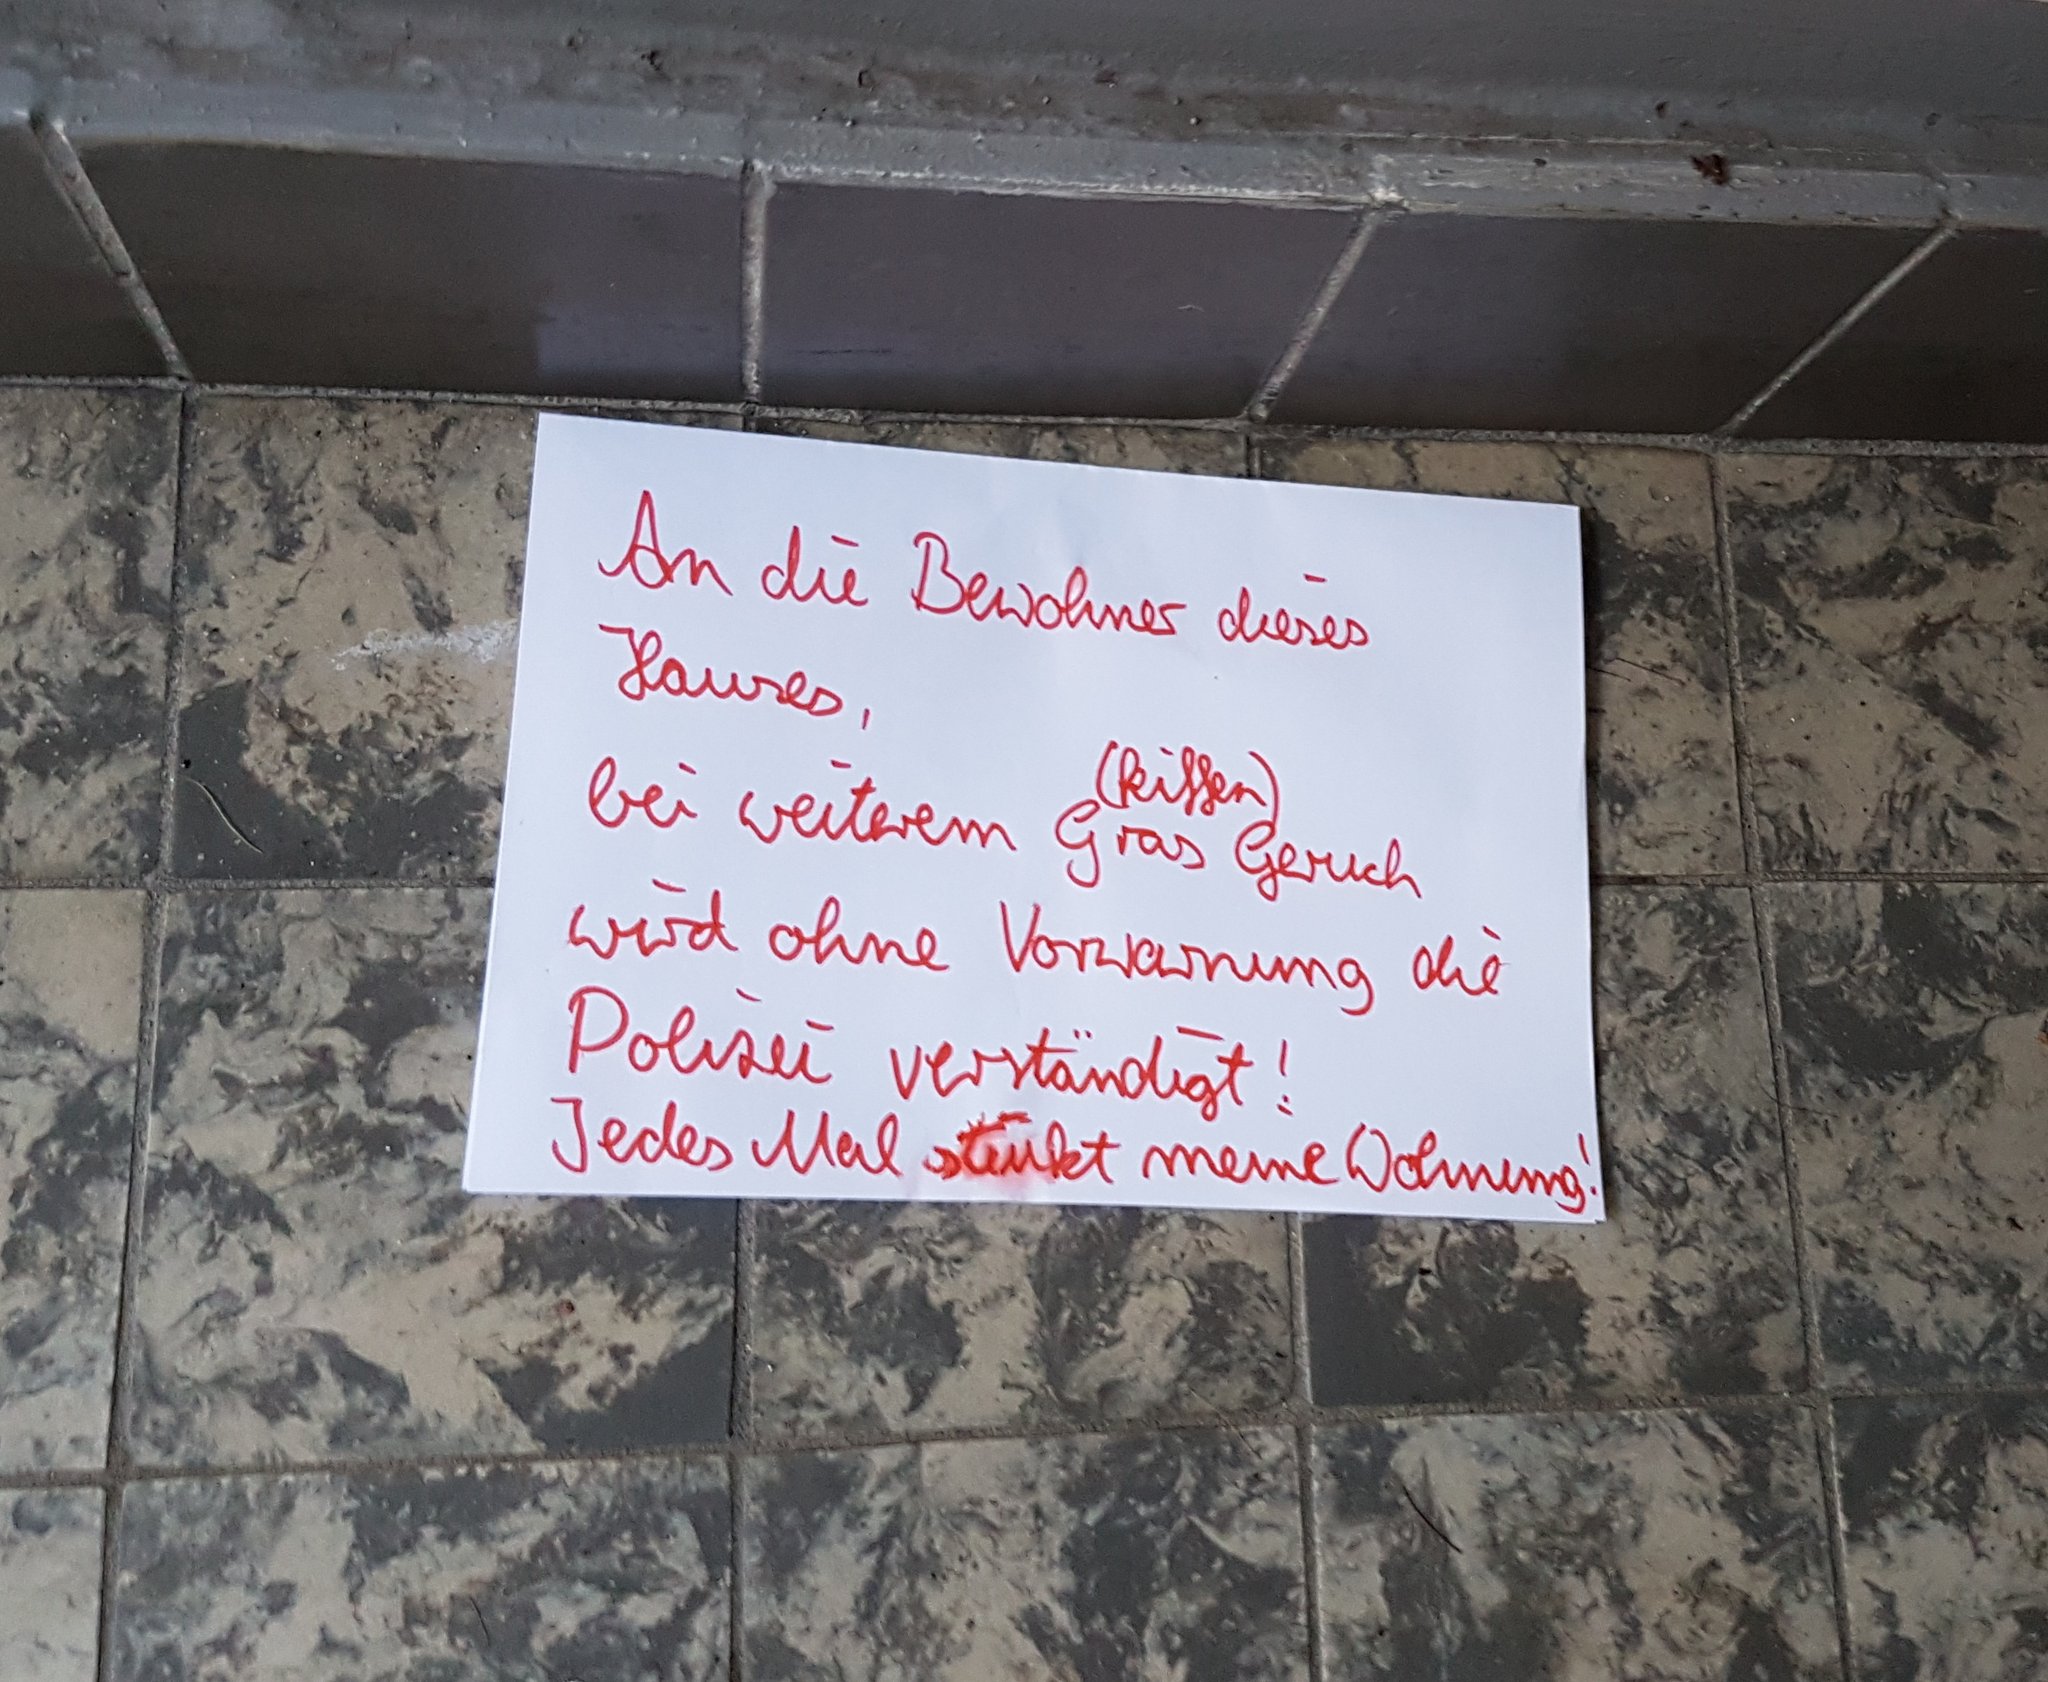 An die Bewohner dieses
Hauses,
(kiffen)
bei weiterem Gras Geruch
wird ohne Vorwarnung die
Polizei verständigt!
Jedes Mal stinkt meine Wohnung!